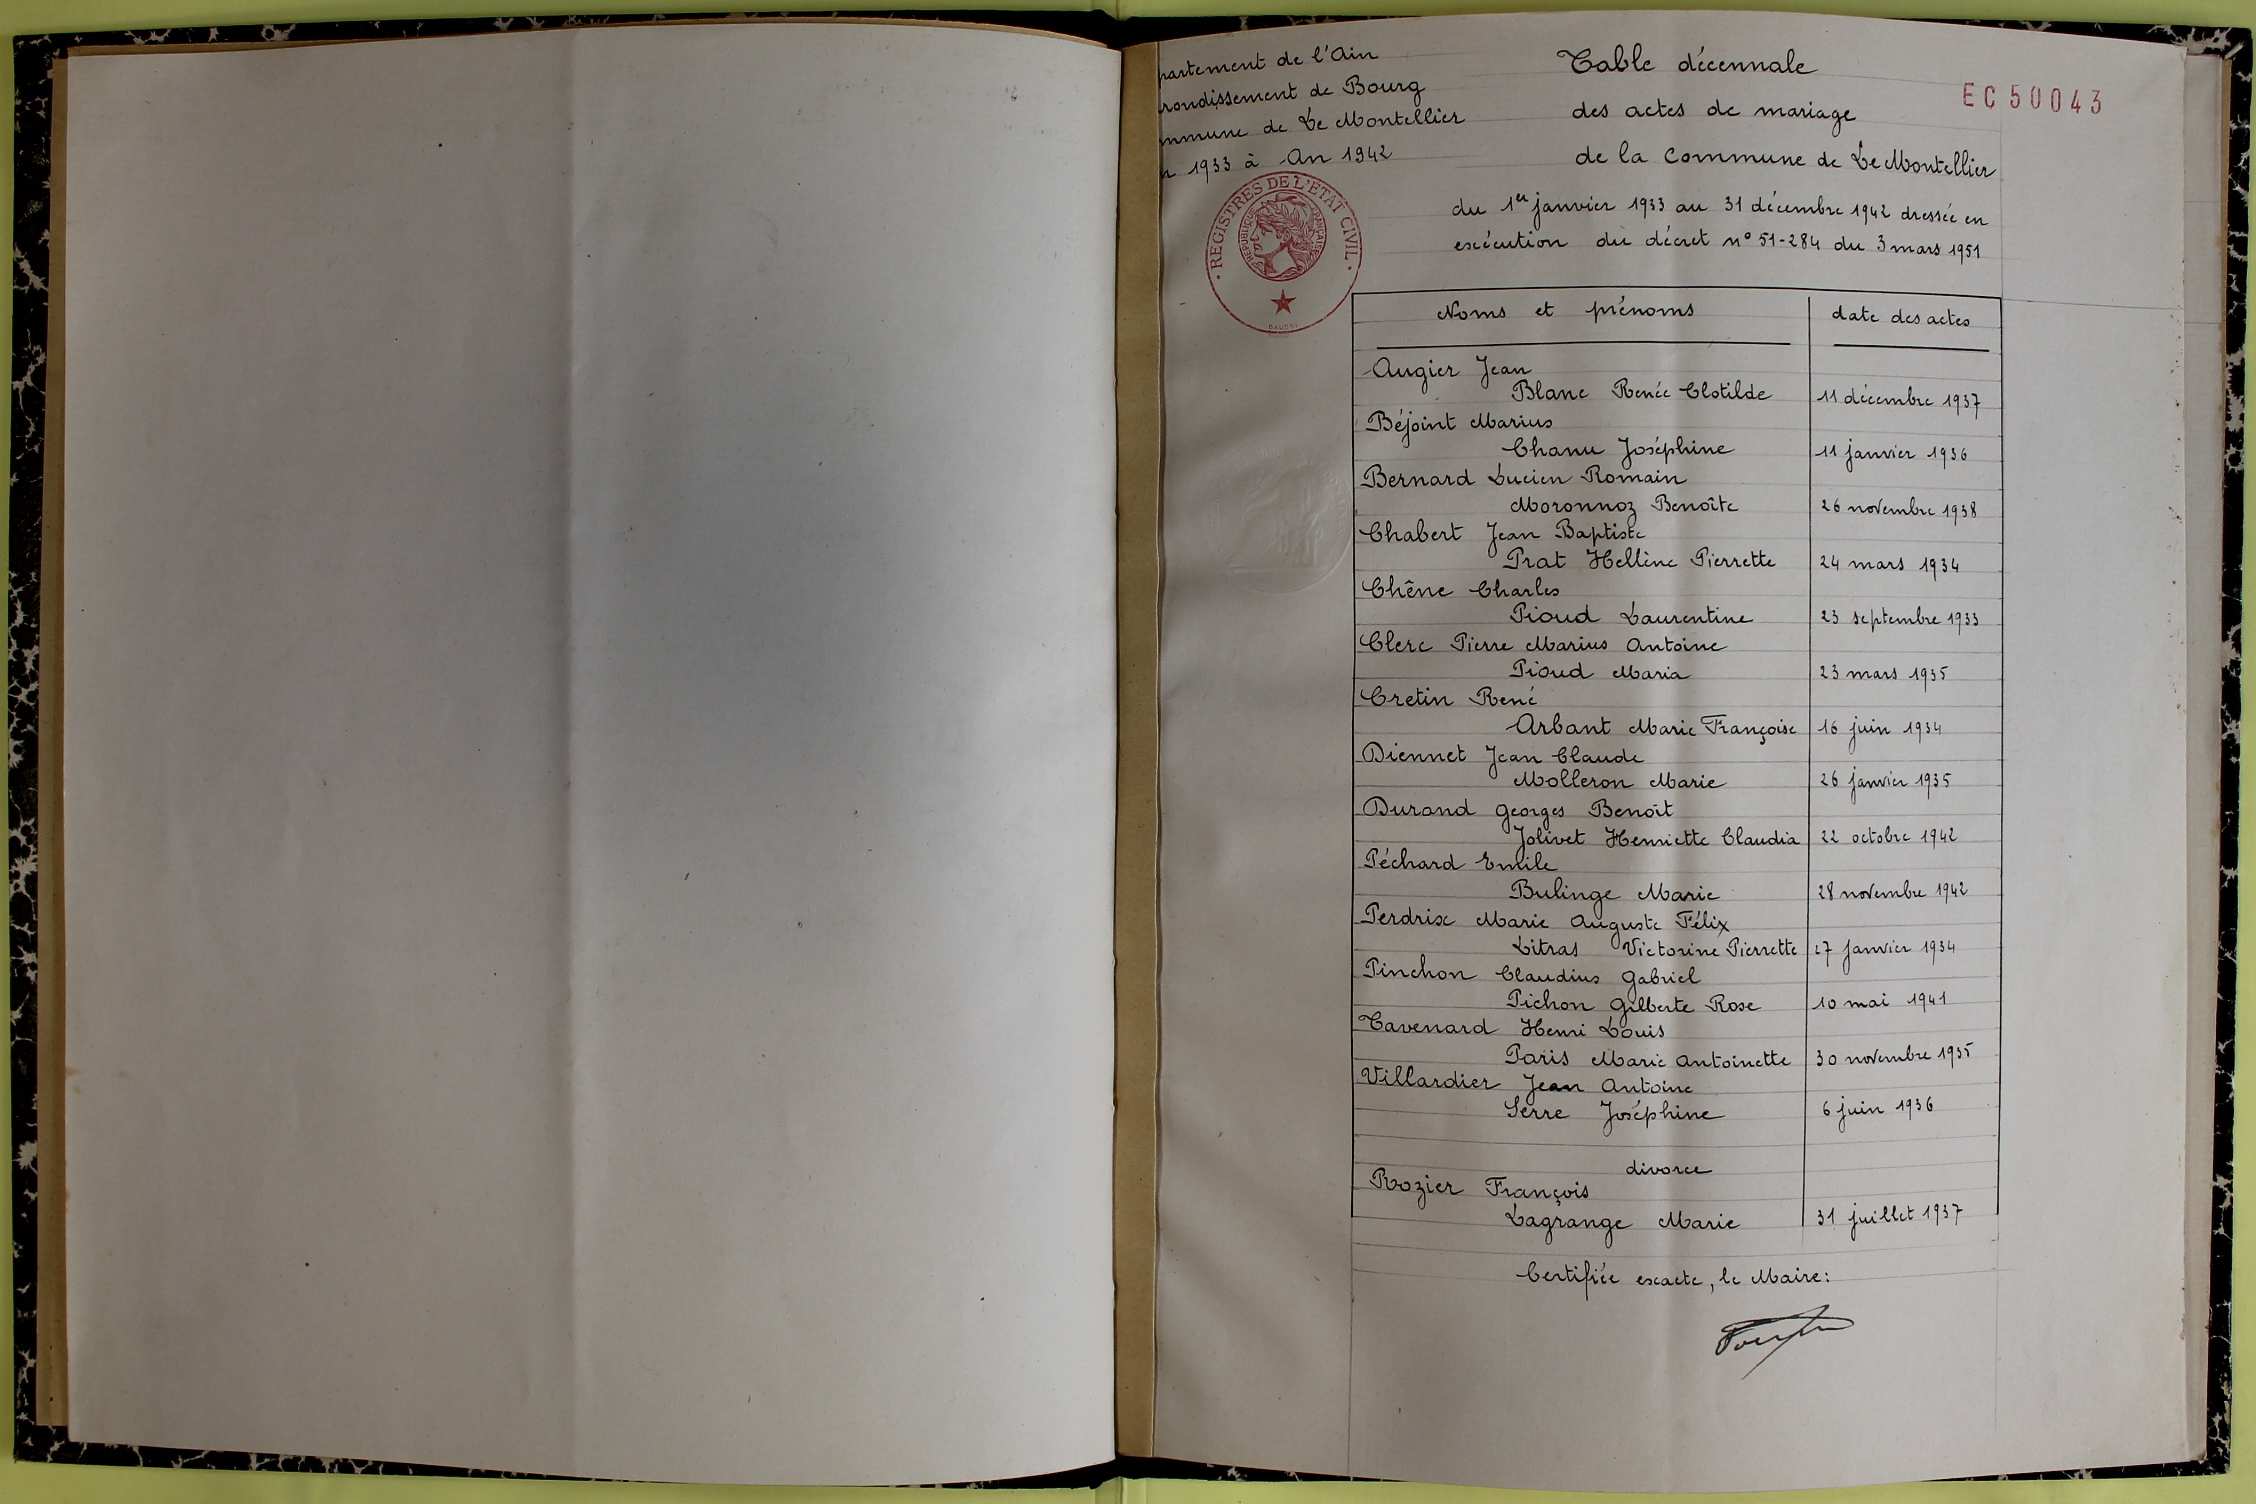 partement de l'Ain
rondissement de Bourg
mmune de Le Montellier
n 1933 à An 1942
Table décennale
des actes de mariage
de la Commune de Le Montellier
du 1er janvier 1933 au 31 décembre 1942 dressée en
exécution du décret n° 51-284 du 3 mars 1951
EC50043
REGISTRES DE L'ETAT CIVIL
REPUBLIQUE FRANÇAISE
Noms et prénoms date des actes
Augier Jean
Blanc Renée Clotilde 11 décembre 1937
Béjoint Marius
Chanu Joséphine 11 janvier 1936
Bernard Lucien Romain
Moronnoz Benoîte 26 novembre 1938
Chabert Jean Baptiste
Prat Hellène Pierrette 24 mars 1934
Chêne Charles
Pioud Laurentine 23 septembre 1933
Clerc Pierre Marius Antoine
Pioud Maria 23 mars 1935
Cretin René
Arbant Marie Françoise 16 juin 1934
Diennet Jean Claude
Molleron Marie 26 janvier 1935
Durand Georges Benoît
Jolivet Henriette Claudia 22 octobre 1942
Péchard Emile
Bulinge Marie 28 novembre 1942
Perdrix Marie Auguste Félix
Litras Victorine Pierrette 27 janvier 1934
Pinchon Claudius Gabriel
Pichon Gilberte Rose 10 mai 1941
Tavenard Henri Louis
Paris Marie Antoinette 30 novembre 1935
Villardier Jean Antoine
Serre Joséphine 6 juin 1936
divorce
Rozier François
Lagrange Marie 31 juillet 1937
Certifiée exacte, le Maire: